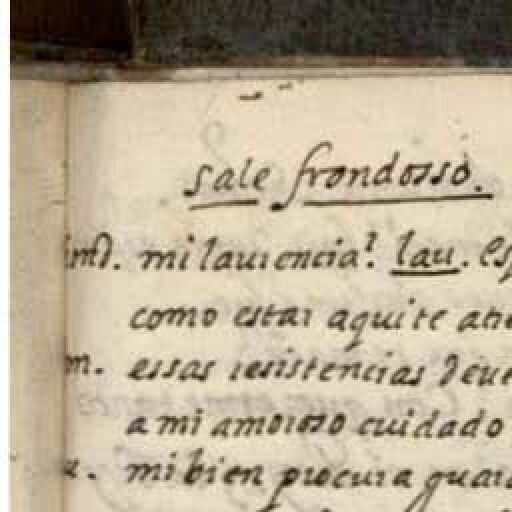 sale frondosso.
mi laurencia? lau.
como estar aqui te atre
essas resistencias deue
a mi amoroso cuidado
mi bien procura guar